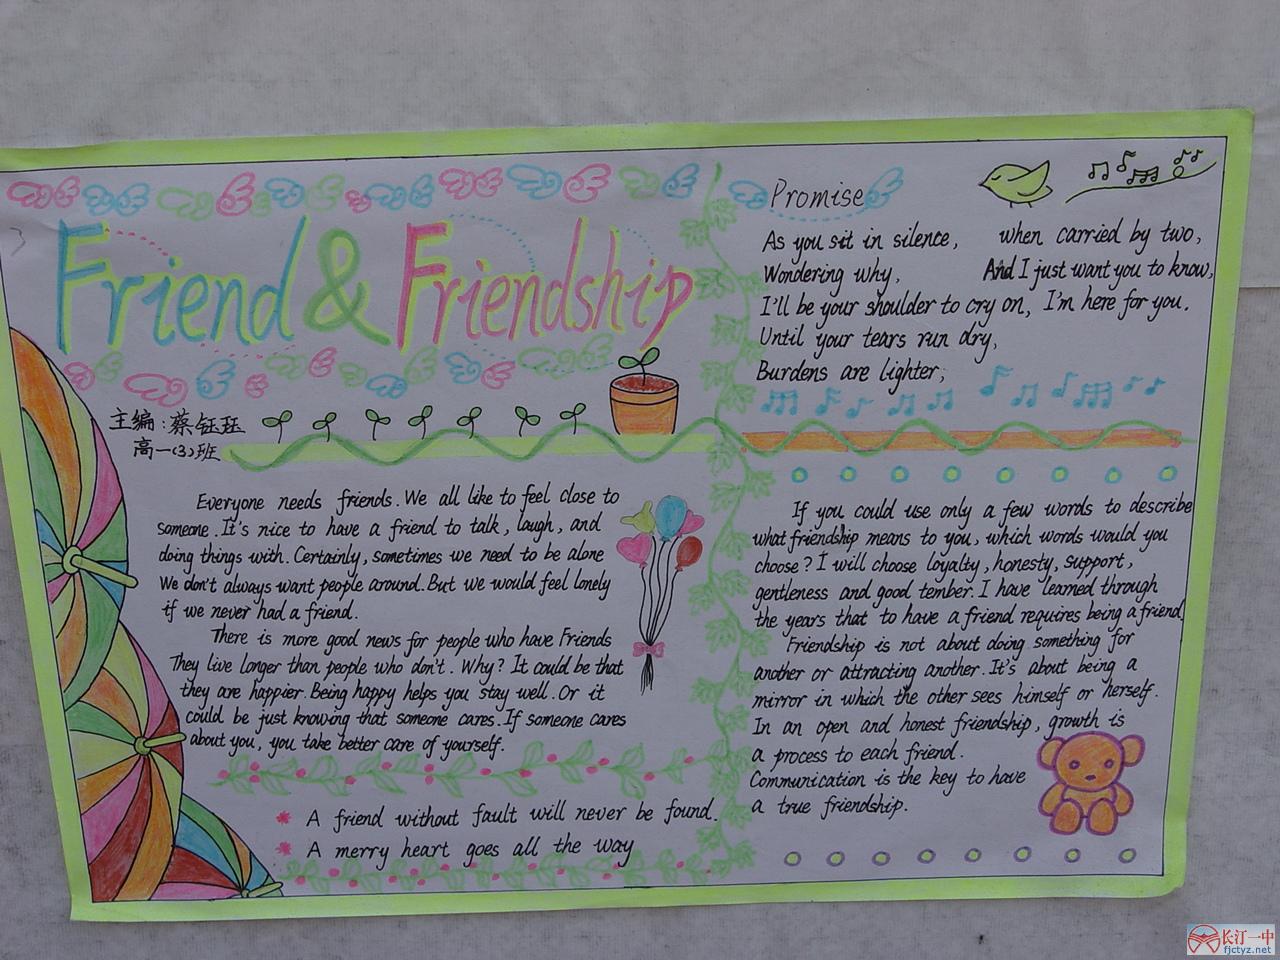 Friend & Friendship
主编:蔡钰珏
高一(3)班
Everyone needs friends. We all like to feel close to
someone. It's nice to have a friend to talk, laugh, and
doing things with. Certainly, sometimes we need to be alone
We don't always want people around. But we would feel lonely
if we never had a friend.
There is more good news for people who have Friends
They live longer than people who don't. Why? It could be that
they are happier. Being happy helps you stay well. Or it
could be just knowing that someone cares. If someone cares
about you, you take better care of yourself.
A friend without fault will never be found.
A merry heart goes all the way
Promise
As you sit in silence,
Wondering why,
I'll be your shoulder to cry on,
Until your tears run dry,
Burdens are lighter,
when carried by two,
And I just want you to know,
I'm here for you.
If you could use only a few words to describe
what friendship means to you, which words would you
choose? I will choose loyalty, honesty, support,
gentleness and good tember. I have learned through
the years that to have a friend requires being a friend.
Friendship is not about doing something for
another or attracting another. It's about being a
mirror in which the other sees himself or herself.
In an open and honest friendship, growth is
a process to each friend.
Communication is the key to have
a true friendship.
长汀一中
fjctyz.net